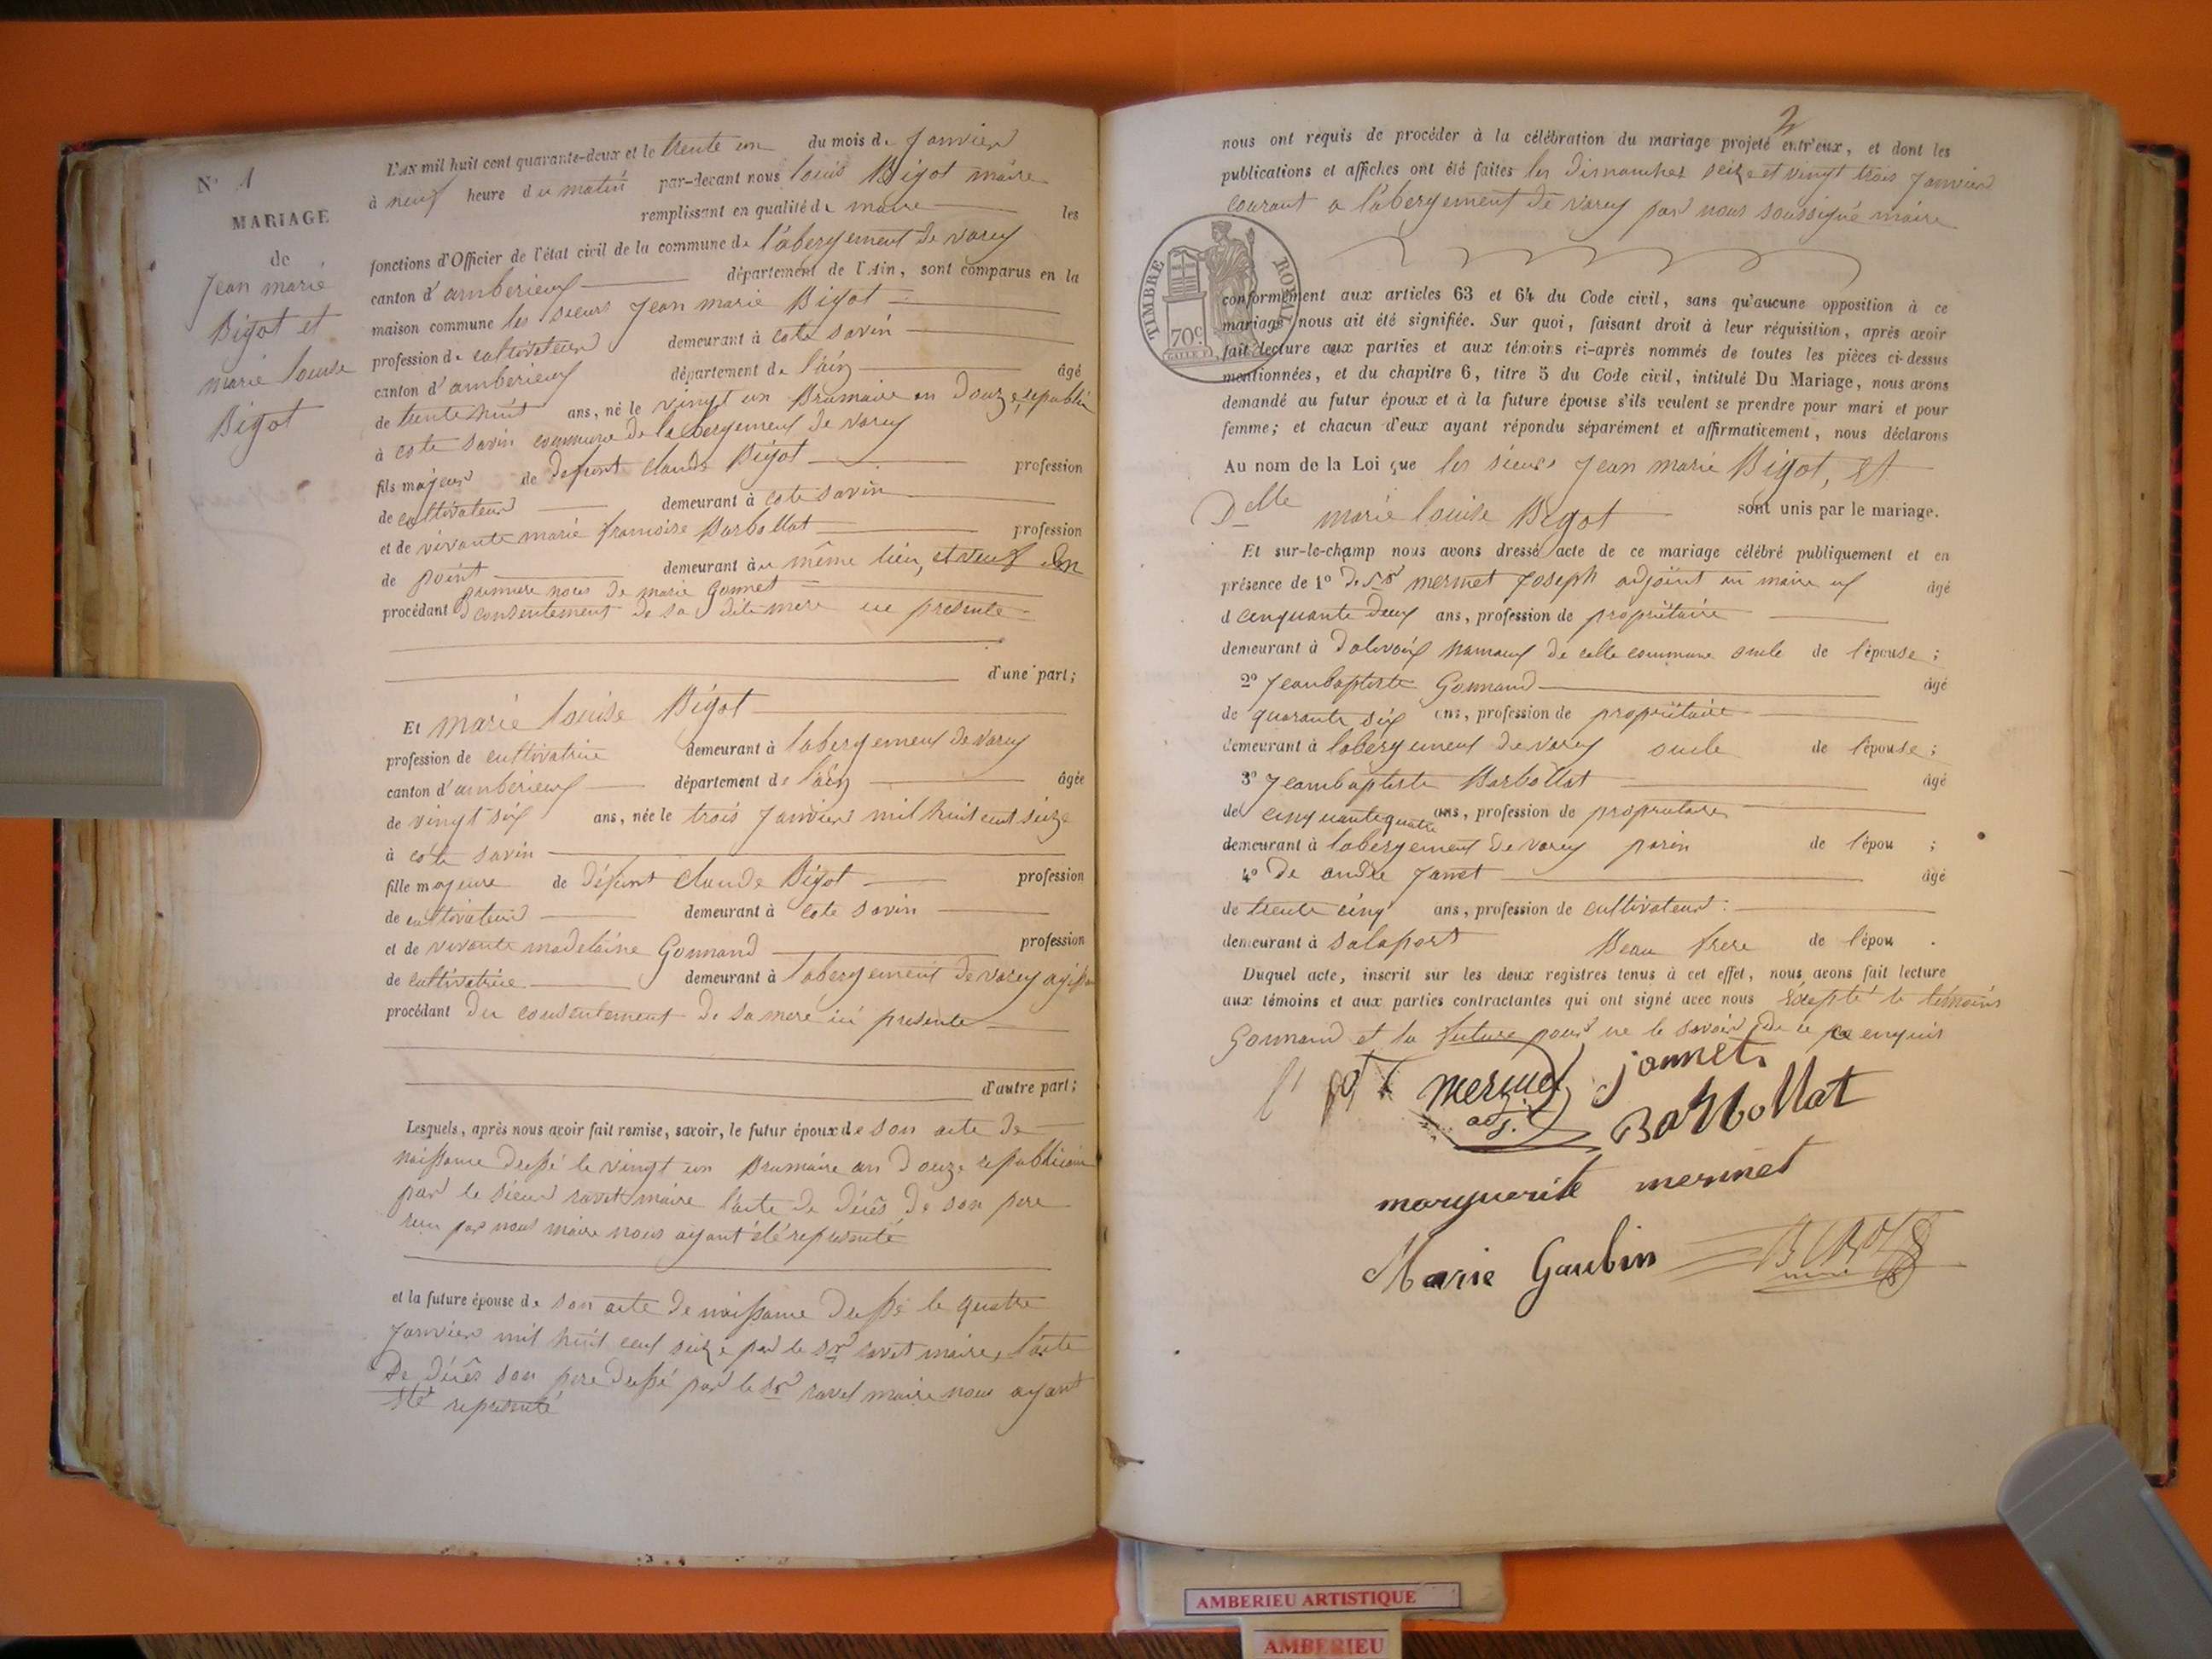 N° 1
MARIAGE
de
Jean marie
Bigot et
marie louise
Bigot
L'AN mil huit cent quarante-deux et le trente un du mois de Janvier
à neuf heure du matin par-devant nous louis Bigot maire
remplissant en qualité de maire les
fonctions d'Officier de l'état civil de la commune de l'abergement de varey
canton d'amberieux département de l'Ain, sont comparus en la
maison commune les sieurs Jean marie Bigot
profession de cultivateur demeurant à cote savin
canton d'amberieux département de l'ain âgé
de trente huit ans, né le vingt un Brumaire an douze republi
à cote savin commune de labergement de varey
fils majeur de defunt claude Bigot profession
de cultivateur demeurant à cote savin
et de vivante marie francoise Barbollat profession
de point demeurant au même lieu, et veuf en
premiere noces de marie Gonnet
procédant consentement de sa dite mere ici presente
d'une part;
Et marie louise Bigot
profession de cultivatrice demeurant à labergement de varey
canton d'amberieux département de l'ain âgée
de vingt six ans, née le trois Janvier mil huit cent seize
à cote savin
fille majeure de défunt claude Bigot profession
de cultivateur demeurant à cote savin
et de vivante madelaine Gonnand profession
de cultivatrice demeurant à labergement de varey
procédant du consentement de sa mere ici presente
d'autre part;
Lesquels, après nous avoir fait remise, savoir, le futur époux de son acte de
naissance dressé le vingt un Brumaire an douze republicain
par le sieur savet maire l'acte de décès de son pere
recu par nous maire nous ayant été représenté
et la future épouse de son acte de naissance dressé le quatre
Janvier mil huit cent seize par le sr savet maire, l'acte
de décès son pere dressé par le sr savet maire nous ayant
été représenté
2
nous ont requis de procéder à la célébration du mariage projeté entr'eux, et dont les
publications et affiches ont été faites les dimanches seize et vingt trois Janvier
courant a l'abergement de varey par nous soussigné maire
TIMBRE ROYAL
70c
conformément aux articles 63 et 64 du Code civil, sans qu'aucune opposition à ce
mariage nous ait été signifiée. Sur quoi, faisant droit à leur réquisition, après avoir
fait lecture aux parties et aux témoins ci-après nommés de toutes les pièces ci-dessus
mentionnées, et du chapitre 6, titre 5 du Code civil, intitulé Du Mariage, nous avons
demandé au futur époux et à la future épouse s'ils veulent se prendre pour mari et pour
femme; et chacun d'eux ayant répondu séparément et affirmativement, nous déclarons
Au nom de la Loi que les sieurs Jean marie Bigot, et
Delle marie louise Bigot sont unis par le mariage.
Et sur-le-champ nous avons dressé acte de ce mariage célébré publiquement et en
présence de 1° de sr mermet Joseph adjoint au maire âgé
d cinquante deux ans, profession de propriétaire
demeurant à hameaux de cette commune oncle de l'épouse;
2° Jeanbaptiste Gonnand âgé
de quarante six ans, profession de propriétaire
demeurant à labergement de varey oncle de l'épouse;
3° Jeanbaptiste Barbollat âgé
de cinquante quatre ans, profession de propriétaire
demeurant à labergement de varey parin de l'épou ;
4° De andre Janet âgé
de trente cinq ans, profession de cultivateur
demeurant à salaport Beau frere de l'épou .
Duquel acte, inscrit sur les deux registres tenus à cet effet, nous avons fait lecture
aux témoins et aux parties contractantes qui ont signé avec nous Excepté le témoins
Gonnand et la future pour ne le savoir de ce enquis
mermet jannet
adj. Barbollat
marguerite mermet
Marie Gaubin
AMBERIEU ARTISTIQUE
AMBERIEU